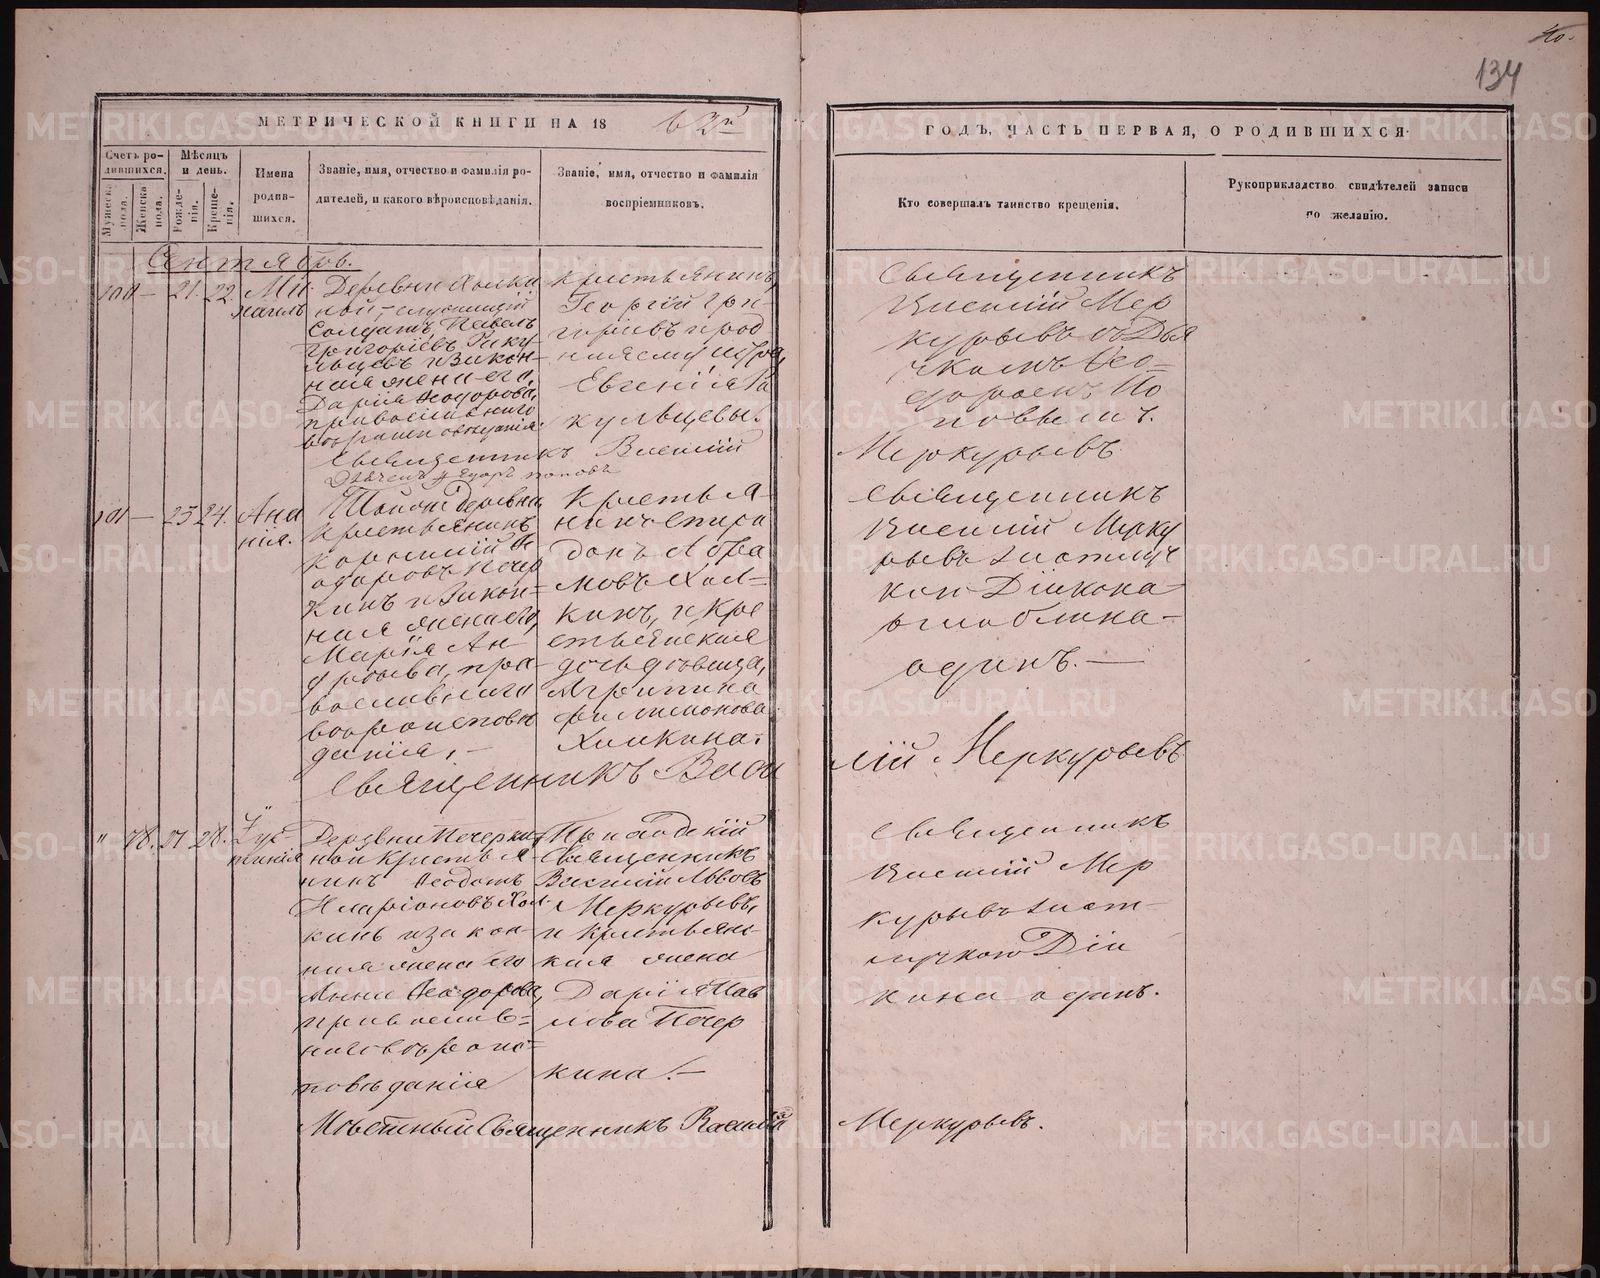 134
МЕТРИЧЕСКОЙ КНИГИ НА 18 62й
ГОДЪ, ЧАСТЬ ПЕРВАЯ, О РОДИВШИХСЯ.
Счетъ ро-
дившихся.
Мужеска
пола.
Женска
пола.
Мѣсяцъ
и день.
Рожде-
нія.
Креще-
нія.
Имена
родив-
шихся.
Званіе, имя, отчество и фамилія ро-
дителей, и какого вѣроисповѣданія.
Званіе, имя, отчество и фамилія
воспріемниковъ.
Кто совершалъ таинство крещенія.
Рукоприкладство свидѣтелей записи
по желанію.
Сентябрь.
100 — 21 22 Ми
хаилъ
Деревни Холки
ной,
Солдатъ Павелъ
Григоріевъ Раку
льцевъ и закон-
ная жена его,
Дарія Ѳеодорова,
православнаго
вѣроисповѣданія.
Крестьянинъ
Георгій Гри-
горіевъ и род
Евгенія Ра
кульцевы.
Священникъ
Василій Мер
курьевъ съ Дья
чкомъ Ѳео-
доромъ По
повымъ.
Священникъ Василій Меркурьевъ
Дьячекъ Поповъ
101 — 23 24. Ана
нія.
Той же деревни,
Крестьянинъ
Корнилій Ѳе
одоровъ Печер
кинъ и закон-
ная жена его,
Марія Ан
дреева, пра-
вославнаго
вѣроисповѣ
данія, —
Крестья-
нинъ Спири
донъ Абра
мовъ Хол-
кинъ, и кре
стьянская
дочь дѣвица,
Агрипина
Филимонова
Холкина.
Священникъ
Василій Мерку
рьевъ за отлуч
кою Діакона
одинъ. —
Священникъ Васи
лій Меркурьевъ
" 78. 27 28. Ев-
гения
Деревни Печерки
ной Крестья
нинъ Ѳеодотъ
Иларіоновъ Хол
кинъ и закон-
ная жена его
Анна Ѳеодорова,
православ-
наго вѣроис-
повѣданія
Приходскій
Священникъ
Василій Львовъ
Меркурьевъ,
и крестьянс-
кая жена
Дарія Пав
лова Печер
кина. —
Священникъ
Василій Мер
курьевъ за от-
лучкою Діа
кона одинъ.
Мѣстный Священникъ Василій Меркурьевъ.